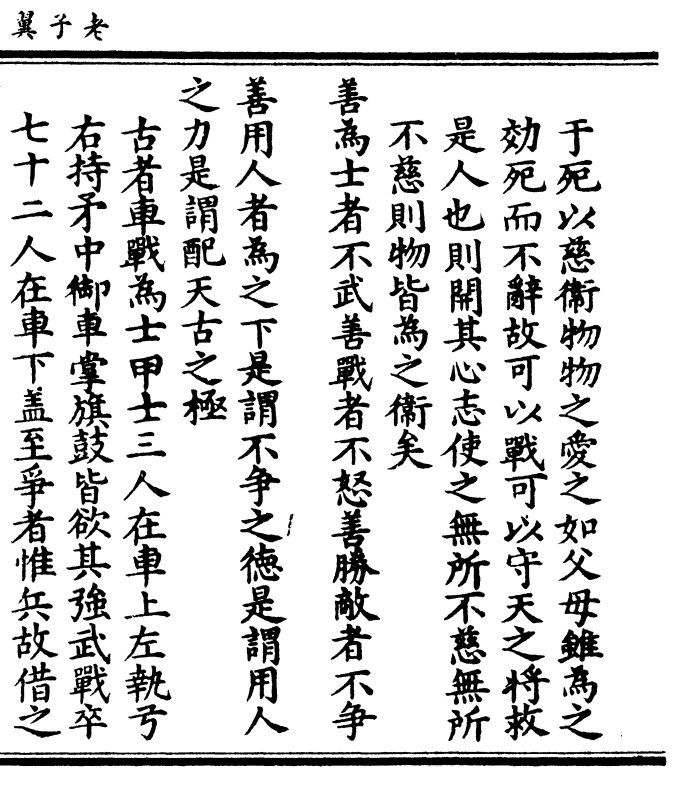 老子翼
于死以慈衞物物之愛之如父母雖為之
効死而不辭故可以戰可以守天之將救
是人也則開其心志使之無所不慈無所
不慈則物皆為之衞矣
善為士者不武善戰者不怒善勝敵者不争
善用人者為之下是謂不争之德是謂用人
之力是謂配天古之極
古者車戰為士甲士三人在車上左執弓
右持矛中御車掌旗鼓皆欲其強武戰卒
七十二人在車下盖至爭者惟兵故借之